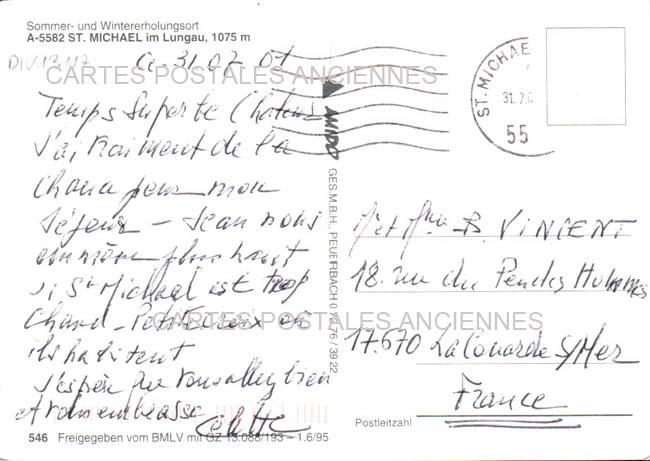 Sommer- und Wintererholungsort
A-5582 ST. MICHAEL im Lungau, 1075 m
DIV13417
Ce 31.07 01
CARTES POSTALES ANCIENNES
Temps Superbe
J'ai vraiment de la
chance pour mon
séjour - Jean nous
emmène plus haut
si St Michael est trop
chaud - où
ils habitent
J'espère que vous allez bien
et vous embrasse
Colette
546 Freigegeben vom BMLV mit GZ 13.088/193 – 1.6/95
AMIDO
GES.M.B.H., PEUERBACH 0 72 76 / 39 22
ST. MICHAEL
31.7.0
55
M et Mme B. VINCENT
18. rue du
CARTES POSTALES ANCIENNES
17.670 La Couarde S/Mer
France
Postleitzahl